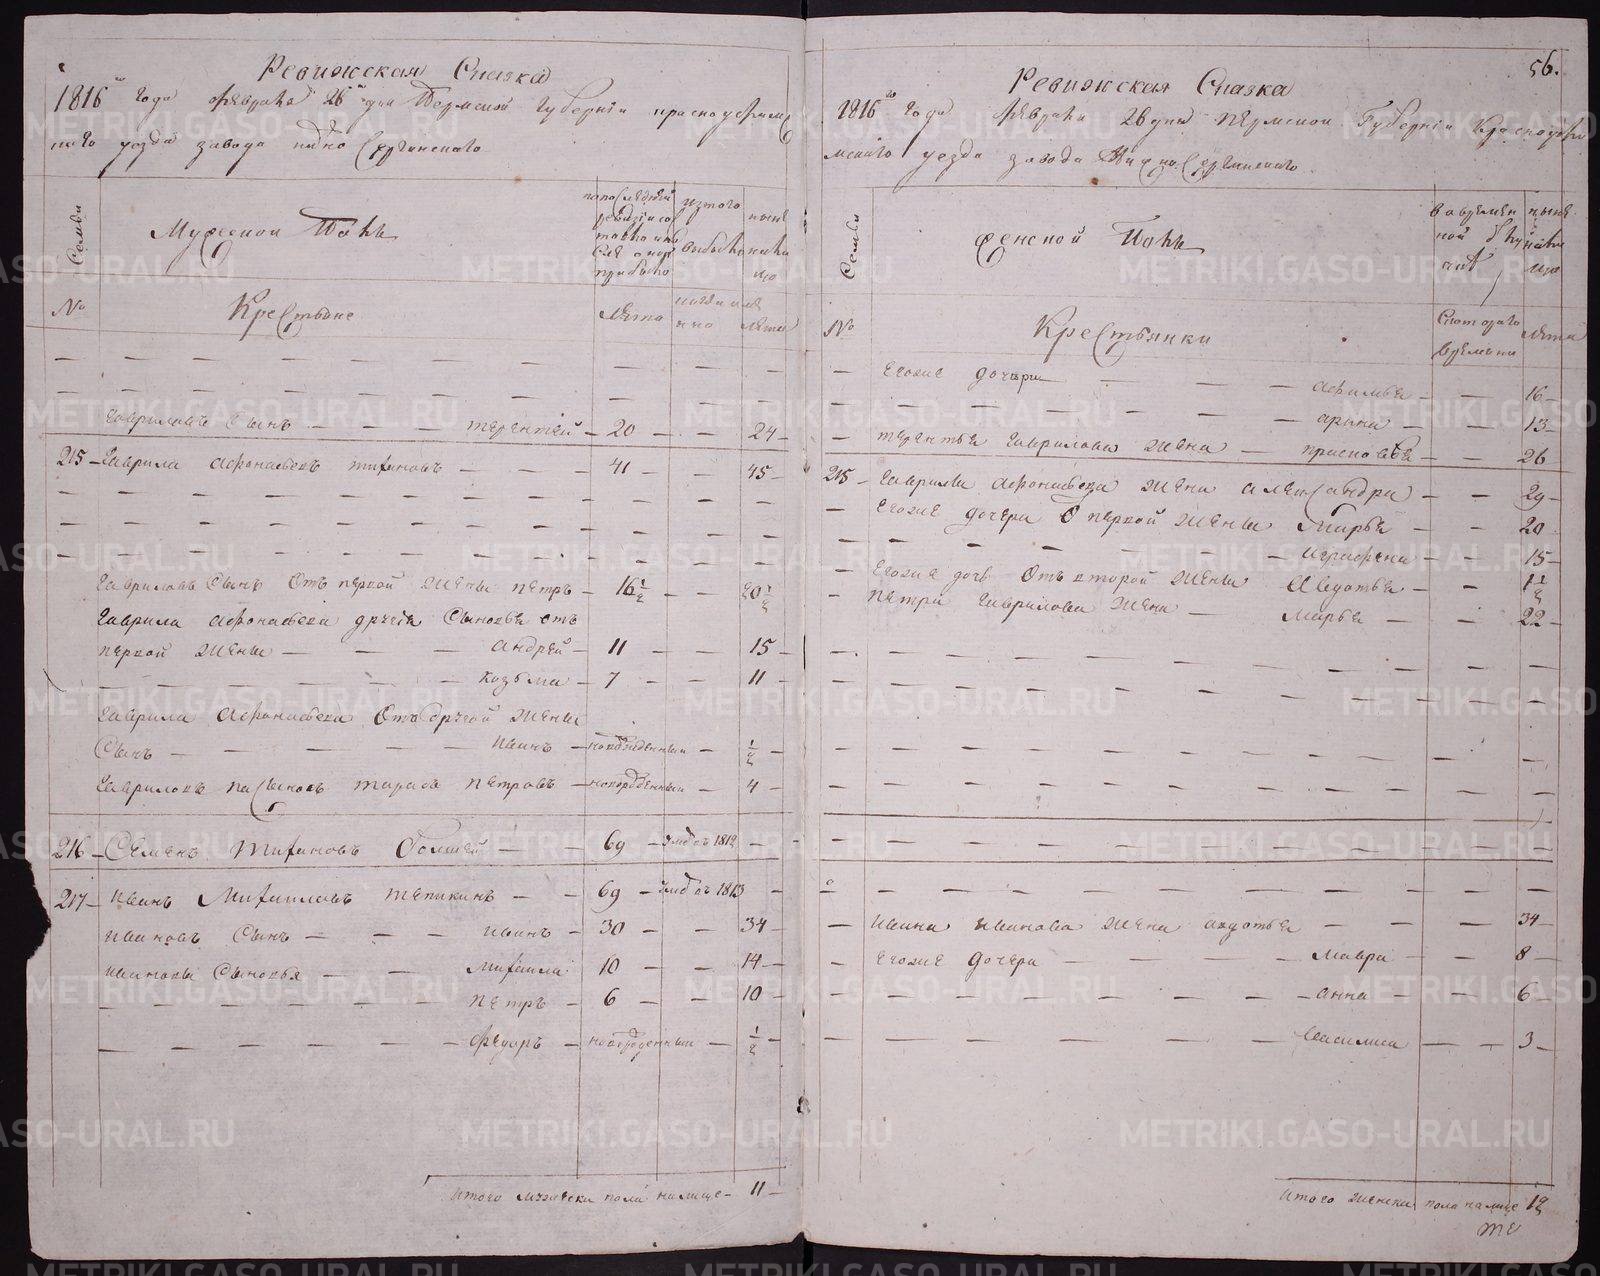 Ревижская Сказка
1816 го года февраля 26 дня Пермской Губернiи красноуфимс
каго уезда завода нижно Сергинского
Семьи
Мужеской Полъ
по последней ревизiи состояло и после оной прибыло
изтого выбыло
ныне налицо
№
Крестьяне
Лета
когда имянно
лета
Гавриловъ Сынъ — — — терентей — 20 — — 24
215 Гаврила Афонасьевъ тихановъ — — — 41 — — 45
Гавриловъ Сынъ Отъ первой Жены петръ — 16 1/2 — — 20 1/2
Гаврила Афонасьева другiя Сыновья отъ
первой Жены — — — Андрей — 11 — — 15
козьма — 7 — — 11
Гаврила Афонасьева Отъ другой Жены
Сынъ — — — Иванъ — новорожденный — 1/2
Гавриловъ пасынокъ тарасъ петровъ — новорожденный — 4
216 Семенъ Тихановъ Болшей — — 69 умеръ въ 1812 —
217 Иванъ Михаиловъ тепикинъ — — 69 умеръ въ 1813 —
Ивановъ Сынъ — — — Иванъ — 30 — — 34
Ивановы Сыновья — — Михаила 10 — — 14
петръ — 6 — — 10
Федоръ — новорожденный — 1/2
Итого мужеска пола налице — 11
56.
Ревижская Сказка
1816 го года февраля 26 дня пермской Губернiи Красноуфи
мскаго уезда завода Нижно Сергинскаго
Семьи
женской Полъ
во временной отлучке
ныне налицо
№
Крестьянки
Съкотораго времени
лета
Еговые дочери — — — Афимья — — 16
арина — — 13
терентья Гаврилова жена — прасковья — — 26
215 Гаврилы Афонасьева Жена александра — — 29
Еговые дочери О первой Жены Марья — — 20
Аграфена — — 15
Еговая дочь Отъ второй Жены Авдотья — — 1 1/2
Петра Гаврилова Жена — Марья — — 22
Ивана Иванова Жена авдотья — — — 34
Еговые дочери — — — Мавра — — 8
анна — — 6
Василиса — — 3
Итого женска пола налице 12